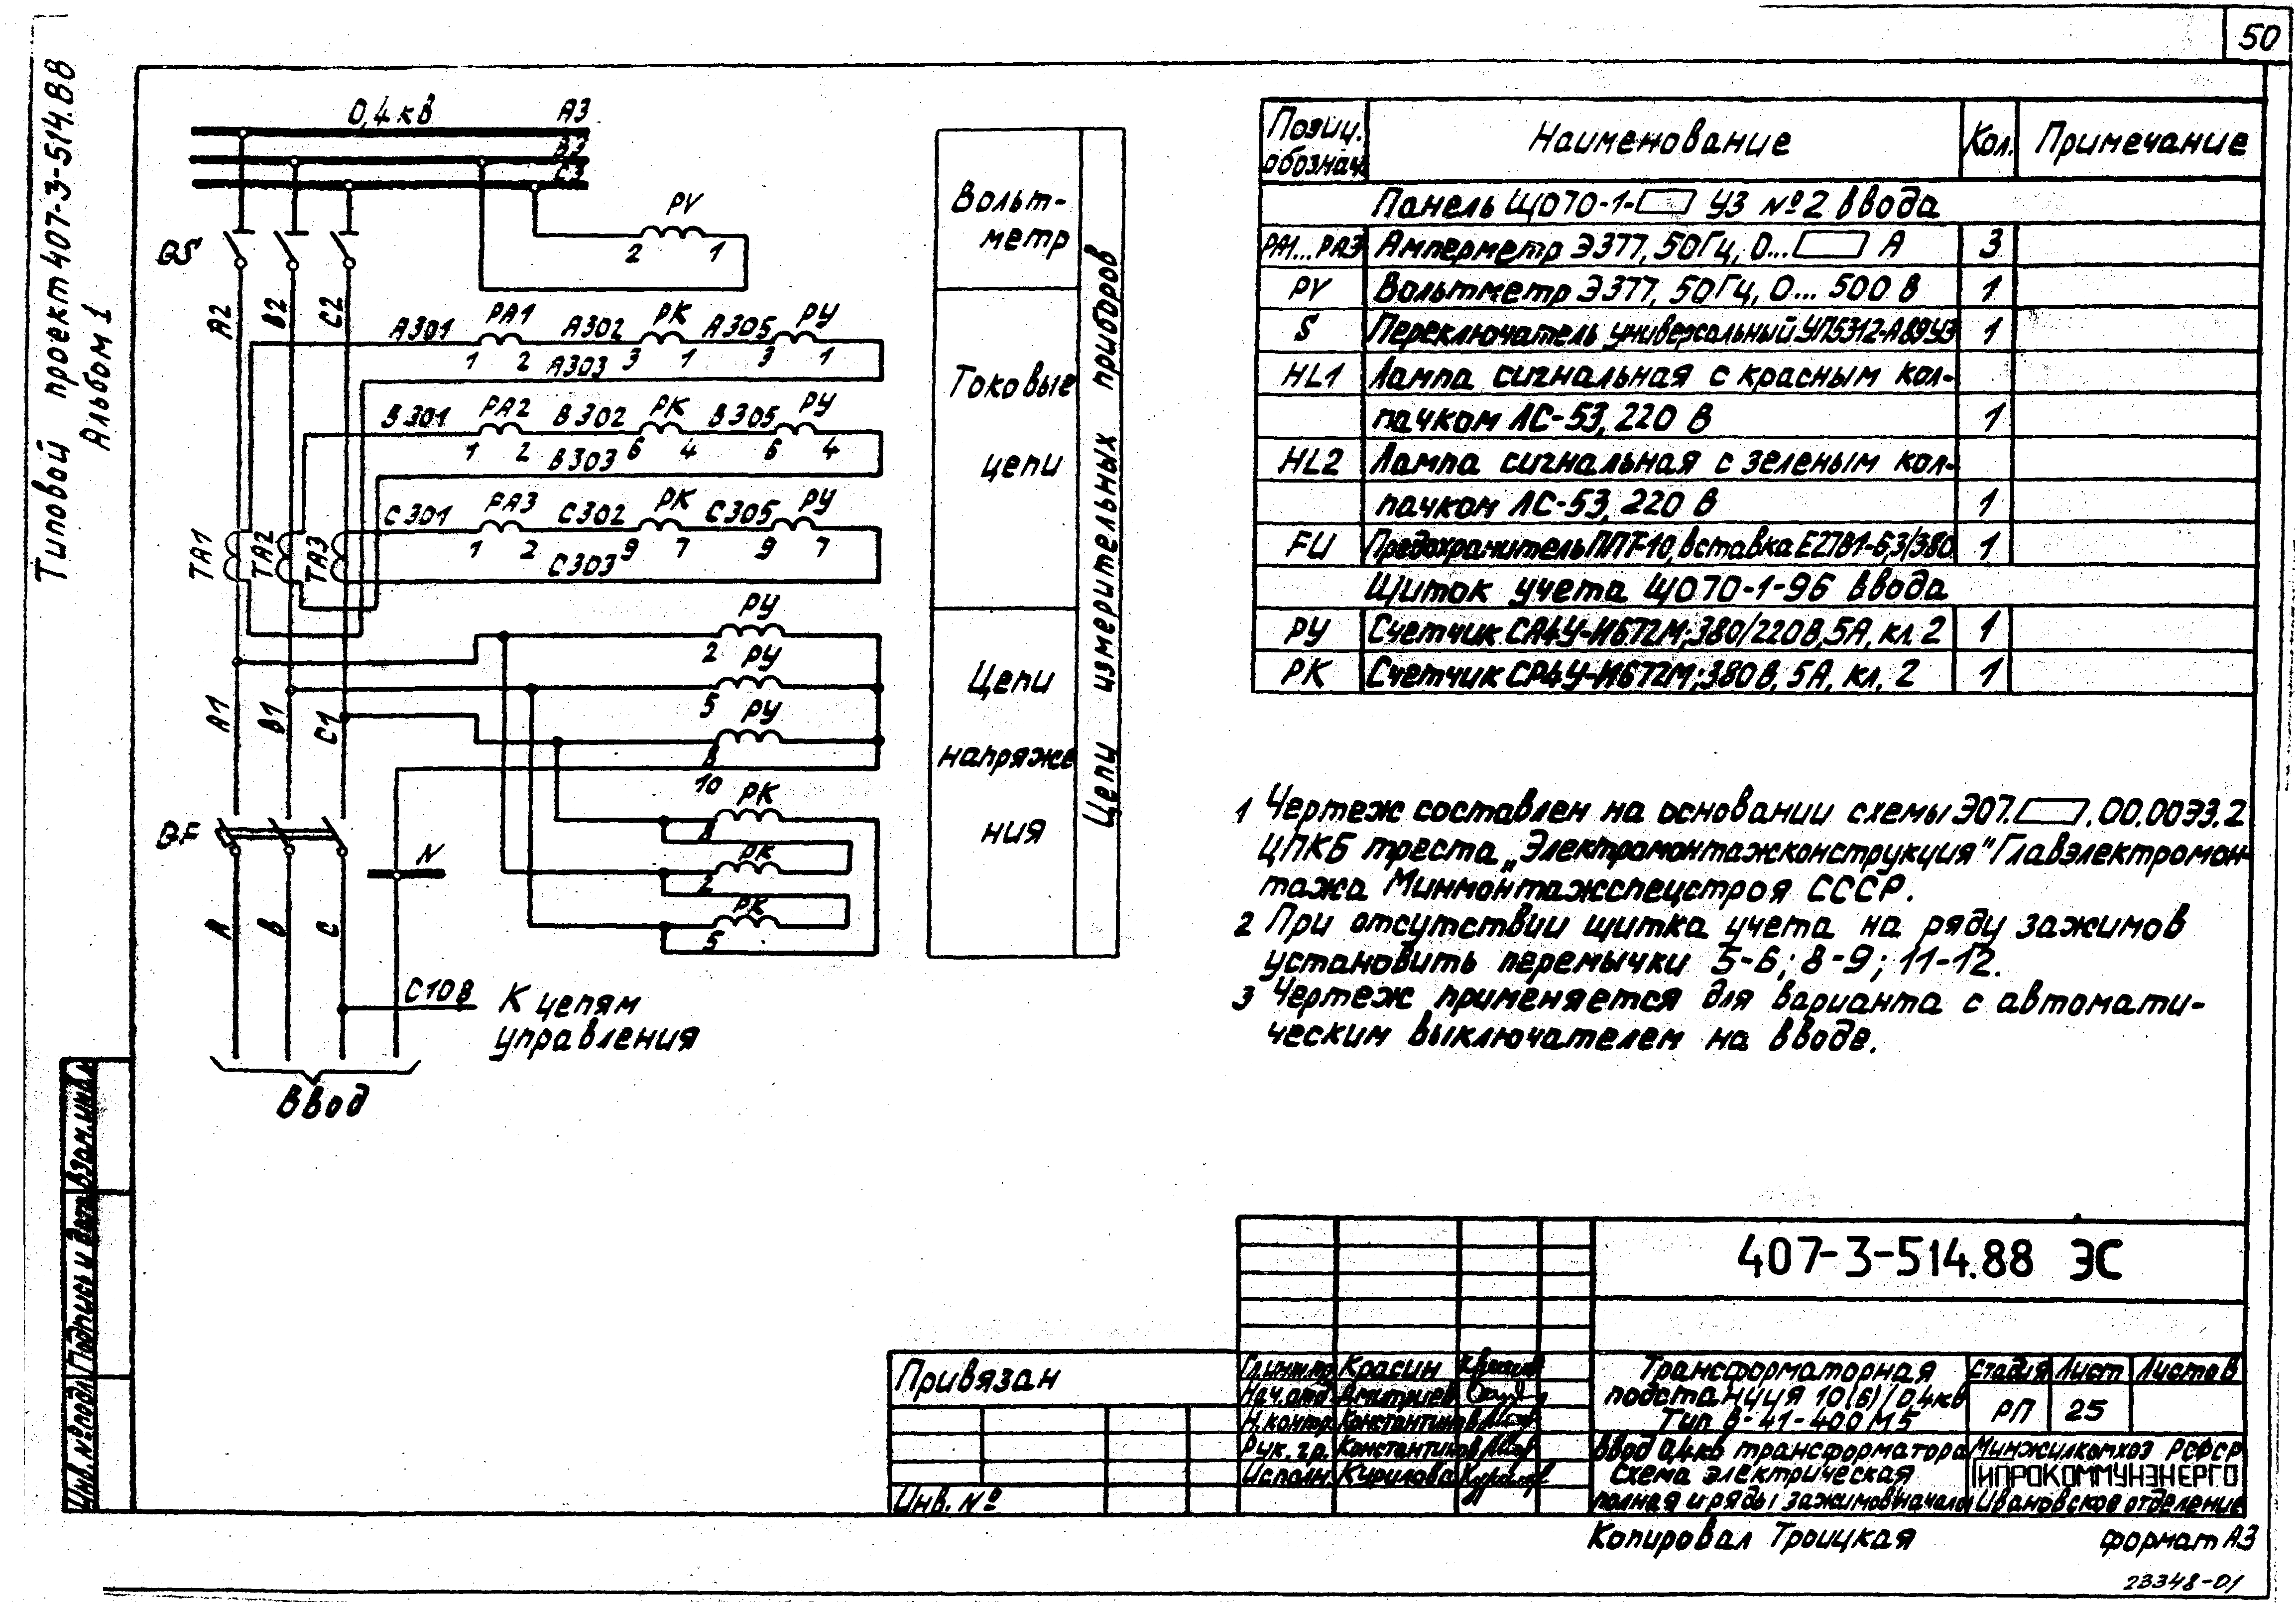 50
Типовой проект 407-3-514.88
Альбом 1
0,4 кВ
А3
В3
С3
QS
PV
2 1
А2 В2 С2
А301 РА1 А302 РК А305 РУ
1 2 А303 3 1 3 1
В301 РА2 В302 РК В305 РУ
1 2 В303 6 4 6 4
С301 РА3 С302 РК С305 РУ
1 2 С303 9 7 9 7
ТА1 ТА2 ТА3
РУ
2 РУ
5 РУ
8
10 РК
8 РК
2 РК
5
А1 В1 С1
QF
N
А В С
С108
К цепям
управления
Ввод
Вольт-
метр
Токовые
цепи
Цепи
напряже
ния
Цепи измерительных приборов
Позиц. обознач. Наименование Кол. Примечание
Панель ЩО70-1- У3 №2 ввода
РА1...РА3 Амперметр Э377, 50Гц, 0... А 3
PV Вольтметр Э377, 50Гц, 0... 500 В 1
S Переключатель универсальный УП5312-А89У3 1
HL1 Лампа сигнальная с красным кол-
пачком ЛС-53, 220 В 1
HL2 Лампа сигнальная с зеленым кол-
пачком ЛС-53, 220 В 1
FU Предохранитель ППТ-10, вставка Е27В1-6,3/380 1
Щиток учета ЩО70-1-96 ввода
РУ Счетчик СА4У-И672М; 380/220В, 5А, кл. 2 1
РК Счетчик СР4У-И672М; 380 В, 5А, кл. 2 1
1 Чертеж составлен на основании схемы Э07. .00.00Э3.2
ЦПКБ треста „Электромонтажконструкция" Главэлектромон-
тажа Минмонтажспецстроя СССР.
2 При отсутствии щитка учета на ряду зажимов
установить перемычки 5-6; 8-9; 11-12.
3 Чертеж применяется для варианта с автомати-
ческим выключателем на вводе.
Взам. инв. №
Подпись и дата
Инв. № подл.
407-3-514.88 ЭС
Привязан
Инв. №
Гл.инж.пр. Красин
Нач.отд. Дмитриев
Н.контр. Константинов
Рук. гр. Константинов
Исполн. Курилова
Трансформаторная
подстанция 10(6)/0,4кВ
Тип В-41-400 М5
Стадия Лист Листов
РП 25
Ввод 0,4кВ трансформатора
Схема электрическая
полная и ряды зажимов начало
Минжилкомхоз РСФСР
ГИПРОКОММУНЭНЕРГО
Ивановское отделение
Копировал Троицкая
формат А3
23348-01